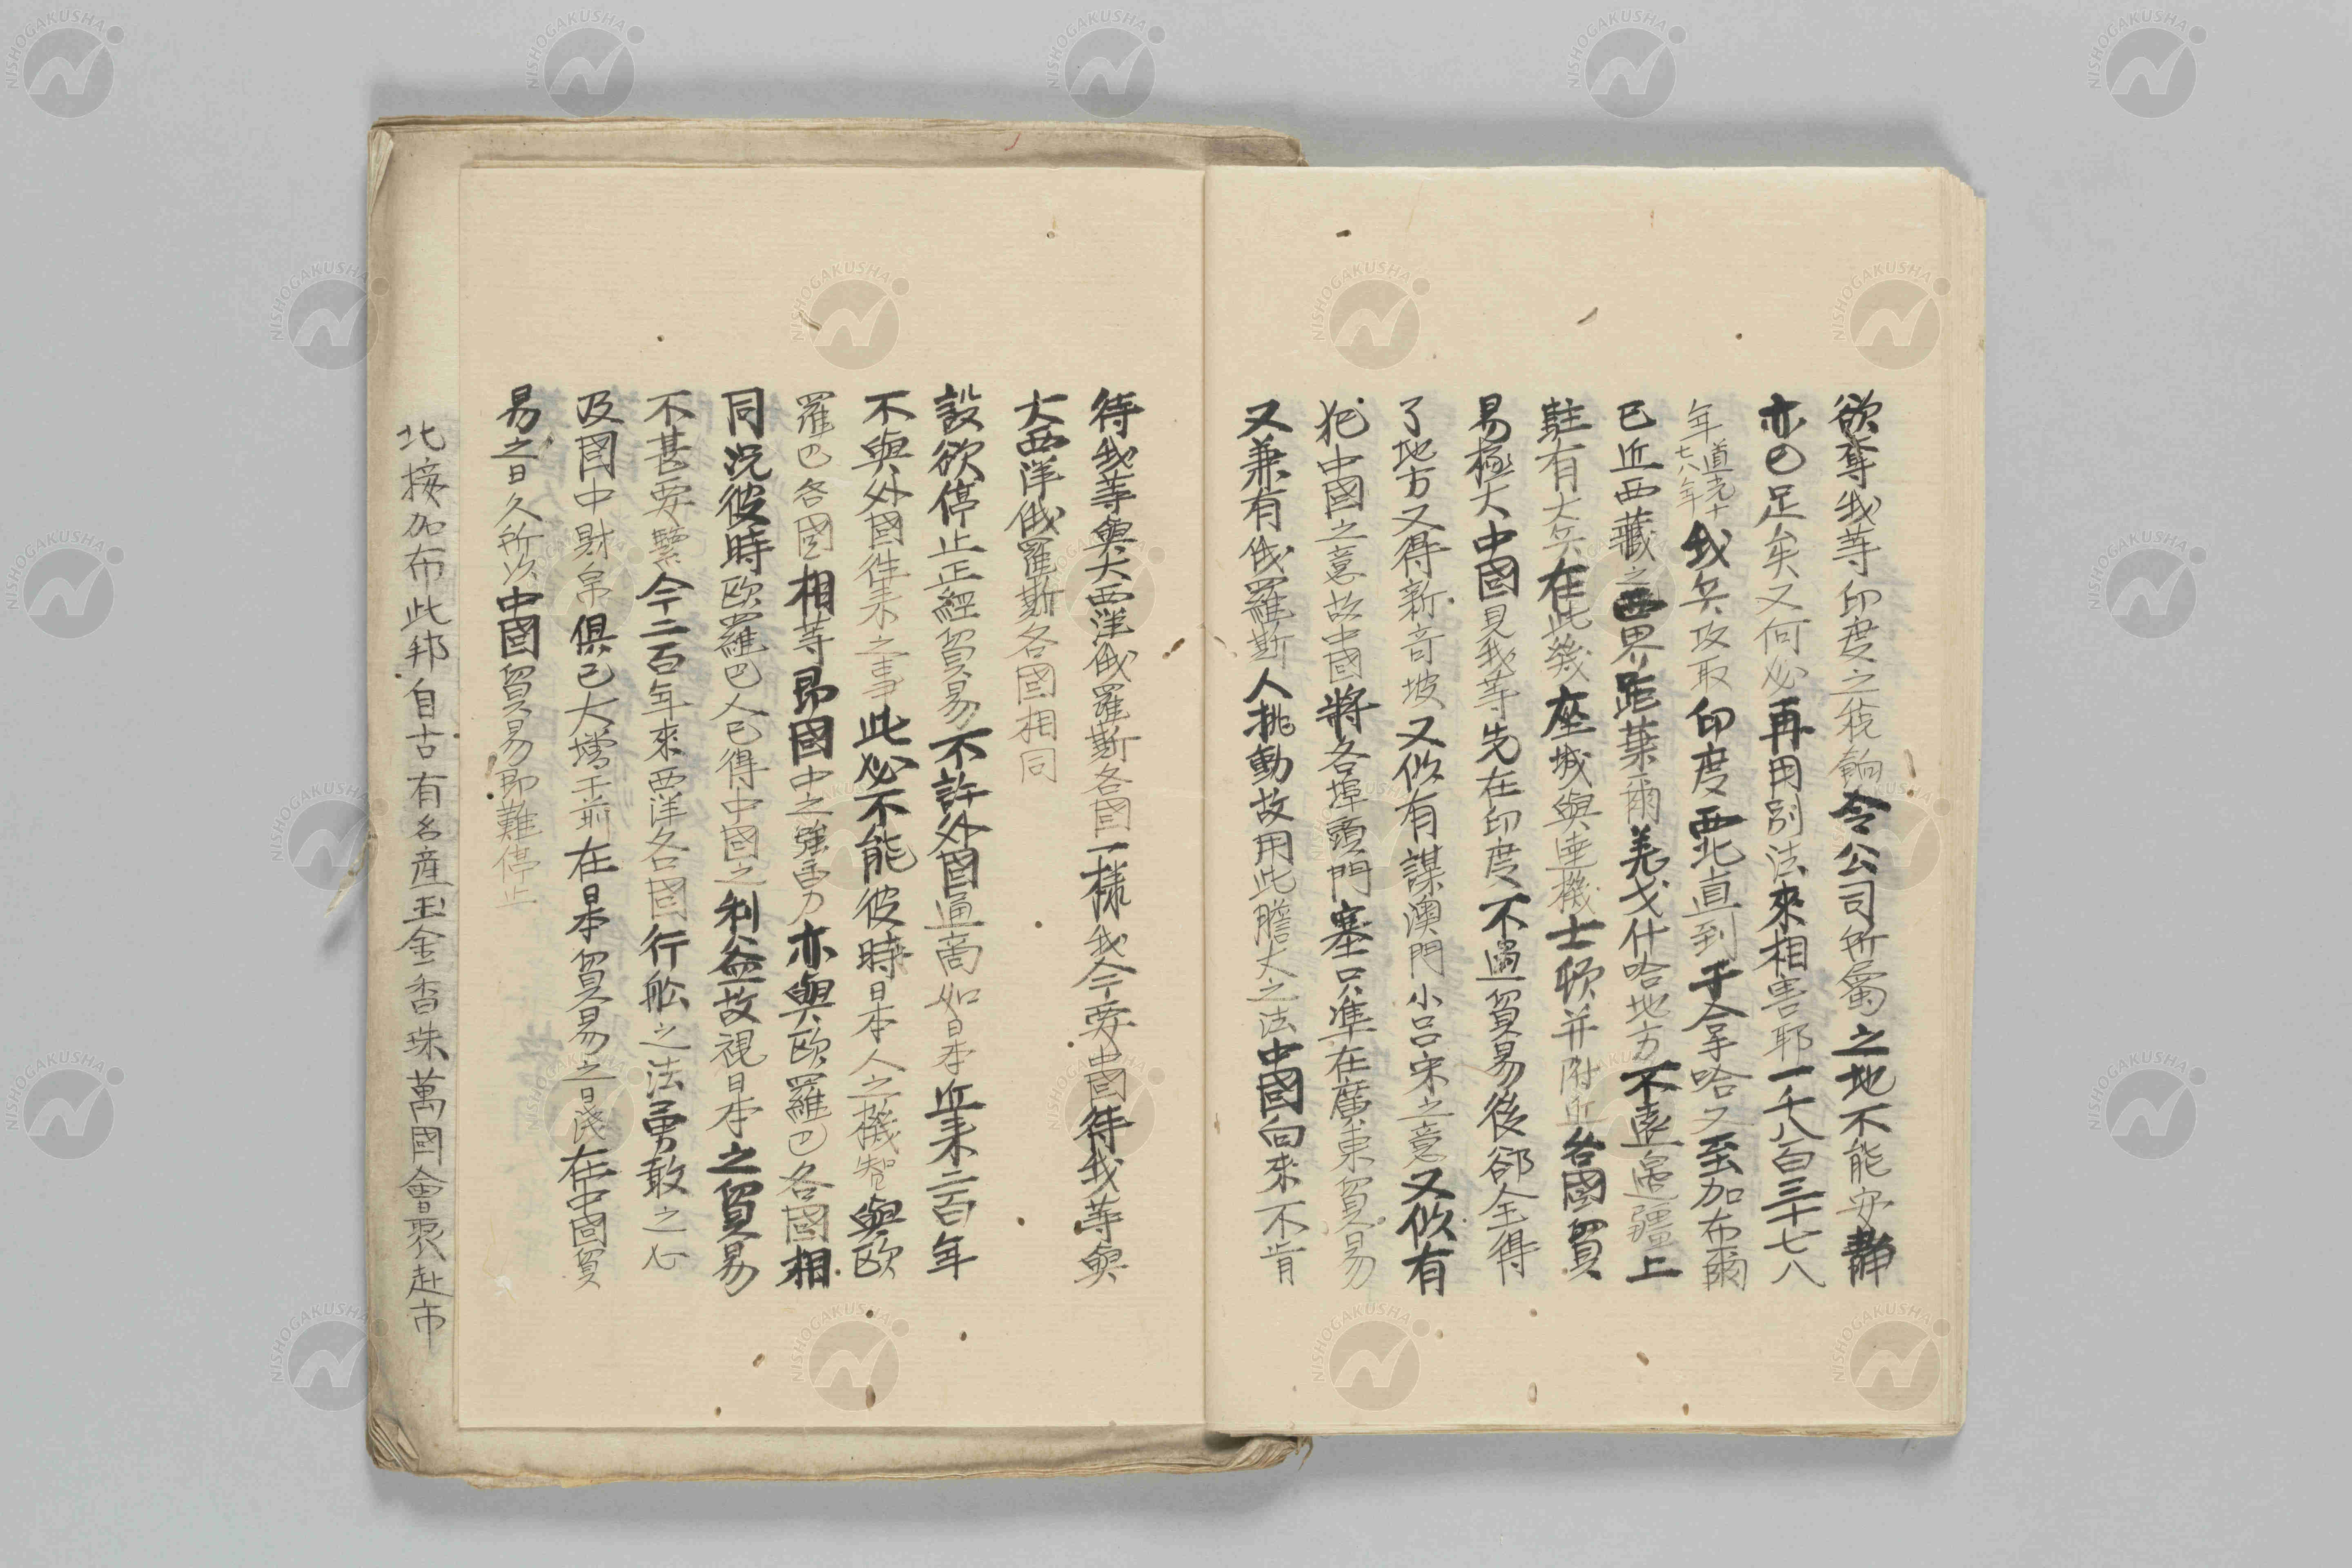 欲奪我等印度之税餉令公司所屬之地不能安靜
亦已足矣又何必再用別法來相害耶一千八百三十七八
年道光十七八年我兵攻取印度西北直到干拿哈又至加布爾
已近西藏之西界距葉爾羌戈什哈地方不遠邊疆上
駐有大兵在此幾座城與達機士頓并附近各國貿
易極大中國見我等先在印度不過貿易後卻全得
了地方又得新奇坡又似有謀澳門小呂宋之意又似有
犯中國之意故中國將各埠頭門塞只準在廣東貿易
又兼有俄羅斯人挑動故用此膽大之法中國向來不肯
待我等與大西洋俄羅斯各國一樣我今要中國待我等與
大西洋俄羅斯各國相同
設欲停止正經貿易不許外國通商如日本近來二百年
不與外國往來之事此必不能彼時日本人之機智與歐
羅巴各國相等即國中之強勇力亦與歐羅巴各國相
同況彼時歐羅巴人已得中國之利益故視日本之貿易
不甚要緊今二百年來西洋各國行船之法勇敢之心
及國中財帛俱已大增于前在日本貿易之日淺在中國貿
易之日久所以中國貿易即難停止
北接加布此邦自古有名產玉金香珠萬國會聚赴市
NISHOGAKUSHA